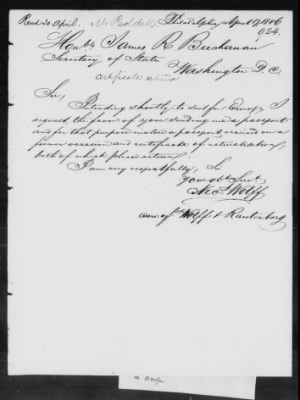 Recd 20 April. Philadelphia April 1846
Honble James R Buchanan
Secretary of State
Washington D.C.
certificate returned
Sir,
Intending shortly to sail for Europe I
request the favor of your sending me a passport
and for that purpose enclose a passport received on a
former occasion and certificate of naturalization
both of which please return.
I am very respectfully, Sir
Your obt Servt
Wolff
care of Wolff & Rautenberg